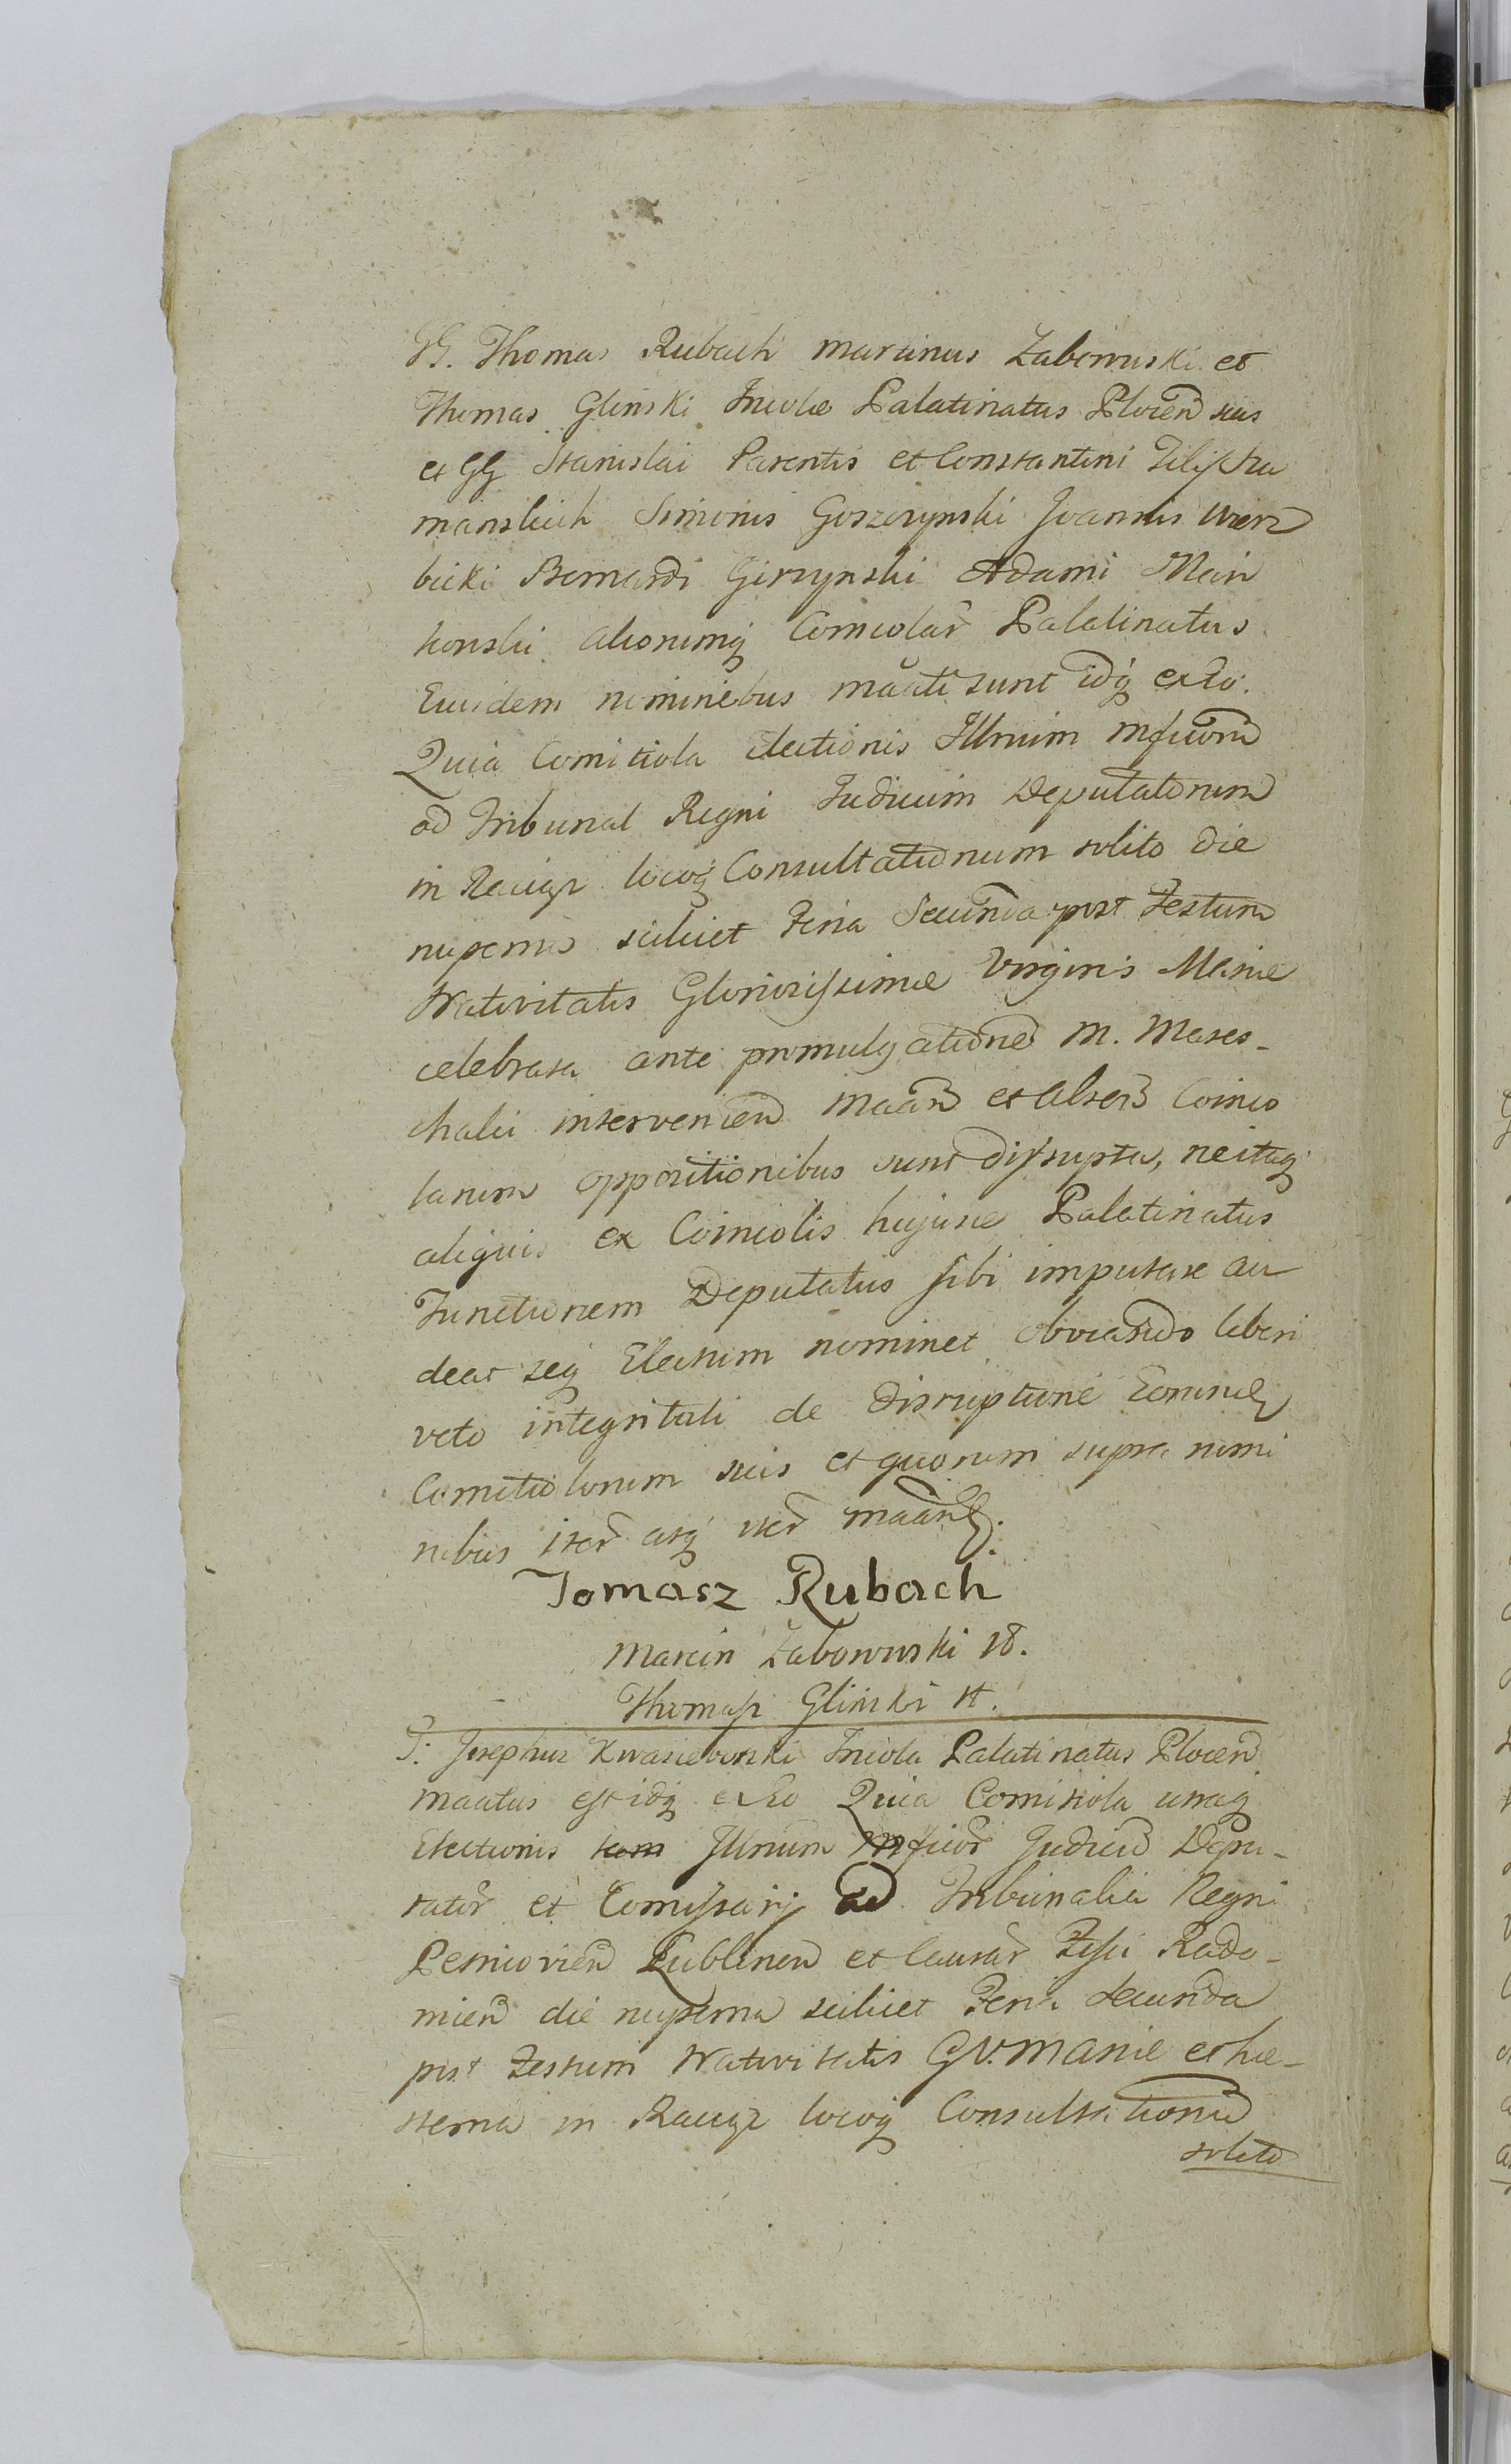 GG. Thomas Rubach Martinus Zabowuski et
Thomas Glinski Incolæ Palatinatus Plocen͠ suis
et GG Stanislai Parentis et Constantini Filij Szu
manskich Simonis Goszczynski Joannis Wierz
bicki Bernardi Girzynski Adami Mein
konski aliorumq Comcolar͠ Palatinatus
Eiusdem nominibus ma͠ati sunt idq exto.
Quia Comitiola electionis Illrium Mfcorum͠
ad Tribunal Regni Judicium Deputatorum
in Raciąz locoq Consultationum solito die
nuperna scilicet Feria Secunda post Festum
Nativitatis Gloriosissimæ Virginis Mariæ
celebrata ante promulgatione͠ M. Mares-
chalci intervenien͠ Maan͠ et alter͠ Coinco
larum oppositionibus sunt disrupta, neitaq
aliquis ex Coincolis hujusce Palatinatus
Functionem Deputatus sibi imputare au
deat seq Electum nominet obviando liberi
veto integritati de disruptione eorumd͠
Comitiolorum suis et quorum supra nomi
nibus iter͠ atq iter͠ maan͠t.
Tomasz Rubach
Marcin Zabowuski 18.
Thomasz Glinski H.
G. Josephus Kwasieborski Incola Palatinatus Plocen͠
maatus est idq exto Quia Comitiola utraq
Electionis tam Illrium Mfcior͠ Judicu͠ Depu-
tator͠ et Comissarij ad Tribunalia Regni
Petricovien͠ Lublinen͠ et Causar͠ Fisci Rado-
mien͠ die nuperna scilicet Feria secunda
post Festum Nativitatis G V. Mariæ et he-
sterna in Raciąz locoq Consultationu͠
solito